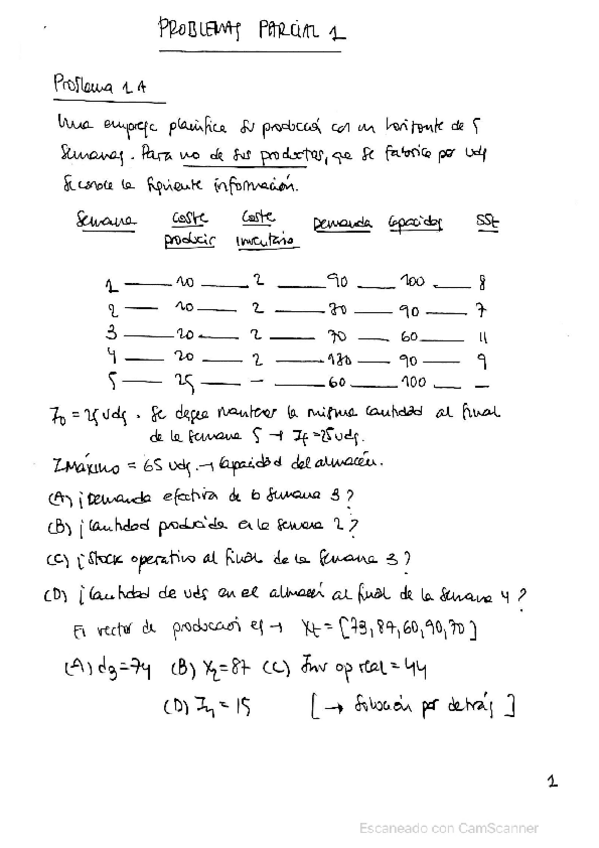 PROBLEMAS PARCIAL 1
Problema 1A
Una empresa planifica su producción con un horizonte de 5
semanas. Para uno de sus productos, que se fabrica por uds
se conoce la siguiente información.
Semana Coste producir Coste inventario Demanda Capacidad SSt
1 — 10 — 2 — 90 — 100 — 8
2 — 10 — 2 — 80 — 90 — 7
3 — 20 — 2 — 70 — 60 — 11
4 — 20 — 2 — 120 — 90 — 9
5 — 25 — - — 60 — 100 — -
I0 = 25 uds. Se desea mantener la misma cantidad al final
de la semana 5 → If = 25 uds.
I Máximo = 65 uds. → Capacidad del almacén.
(A) ¿Demanda efectiva de la semana 3?
(B) ¿Cantidad producida en la semana 2?
(C) ¿Stock operativo al final de la semana 3?
(D) ¿Cantidad de uds en el almacén al final de la semana 4?
El vector de producción es → Xt = [73, 87, 60, 90, 70]
(A) d3 = 74 (B) X2 = 87 (C) Inv op real = 44
(D) I4 = 15 [→ Solución por detrás]
1
Escaneado con CamScanner